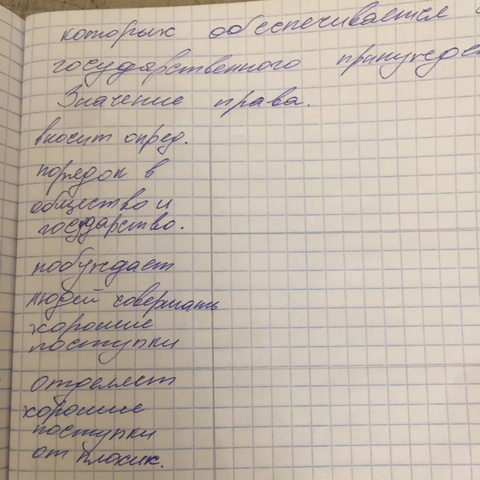 которых обеспечивается с
государственного принужден
Значение права.
вносит опред.
порядок в
общество и
государство.
побуждает
людей совершать
хорошие
поступки
отделяет
хорошие
поступки
от плохих.